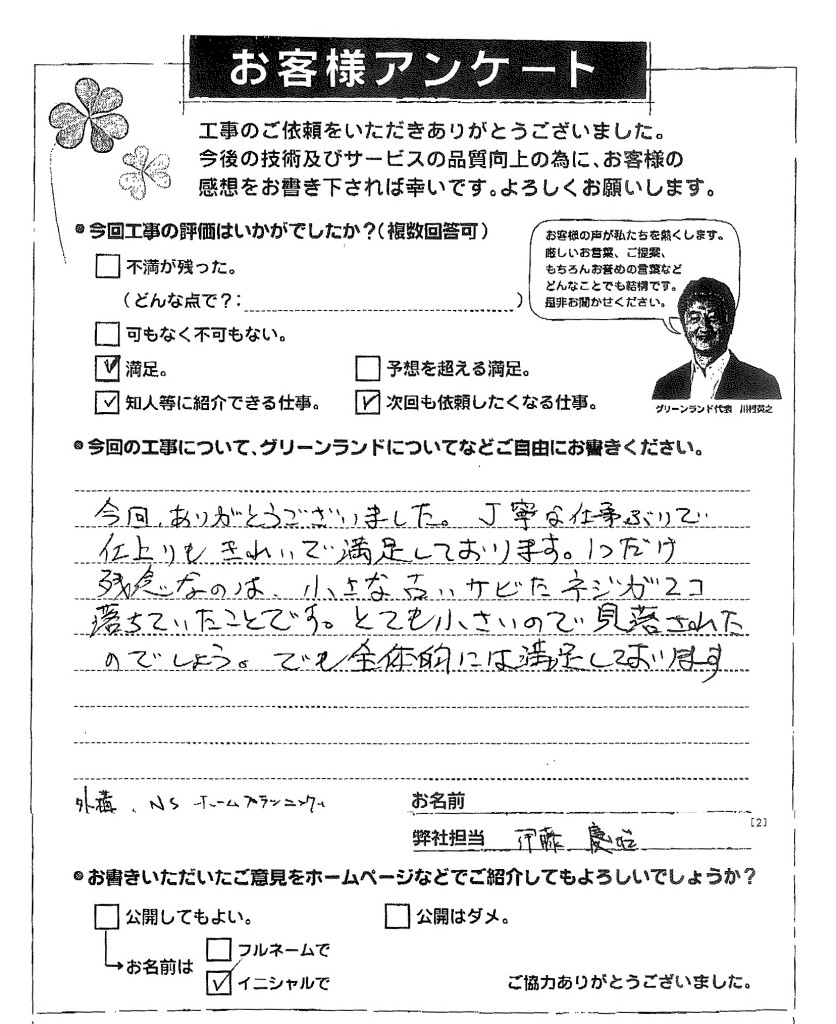 お客様アンケート
工事のご依頼をいただきありがとうございました。
今後の技術及びサービスの品質向上の為に、お客様の
感想をお書き下されば幸いです。よろしくお願いします。
今回工事の評価はいかがでしたか?(複数回答可)
不満が残った。
(どんな点で?: )
可もなく不可もない。
満足。
予想を超える満足。
知人等に紹介できる仕事。
次回も依頼したくなる仕事。
お客様の声が私たちを熱くします。
厳しいお言葉、ご提案、
もちろんお誉めの言葉など
どんなことでも結構です。
是非お聞かせください。
グリーンランド代表 川村英之
今回の工事について、グリーンランドについてなどご自由にお書きください。
今回、ありがとうございました。丁寧な仕事ぶりで
仕上りもきれいで満足しております。1つだけ
残念なのは、小さな古いサビたネジが2コ
落ちていたことです。とても小さいので見落された
のでしょう。でも全体的には満足しております
外構、NSホームプランニング
お名前
[2]
弊社担当 伊藤 慶
お書きいただいたご意見をホームページなどでご紹介してもよろしいでしょうか?
公開してもよい。
公開はダメ。
お名前は
フルネームで
イニシャルで
ご協力ありがとうございました。